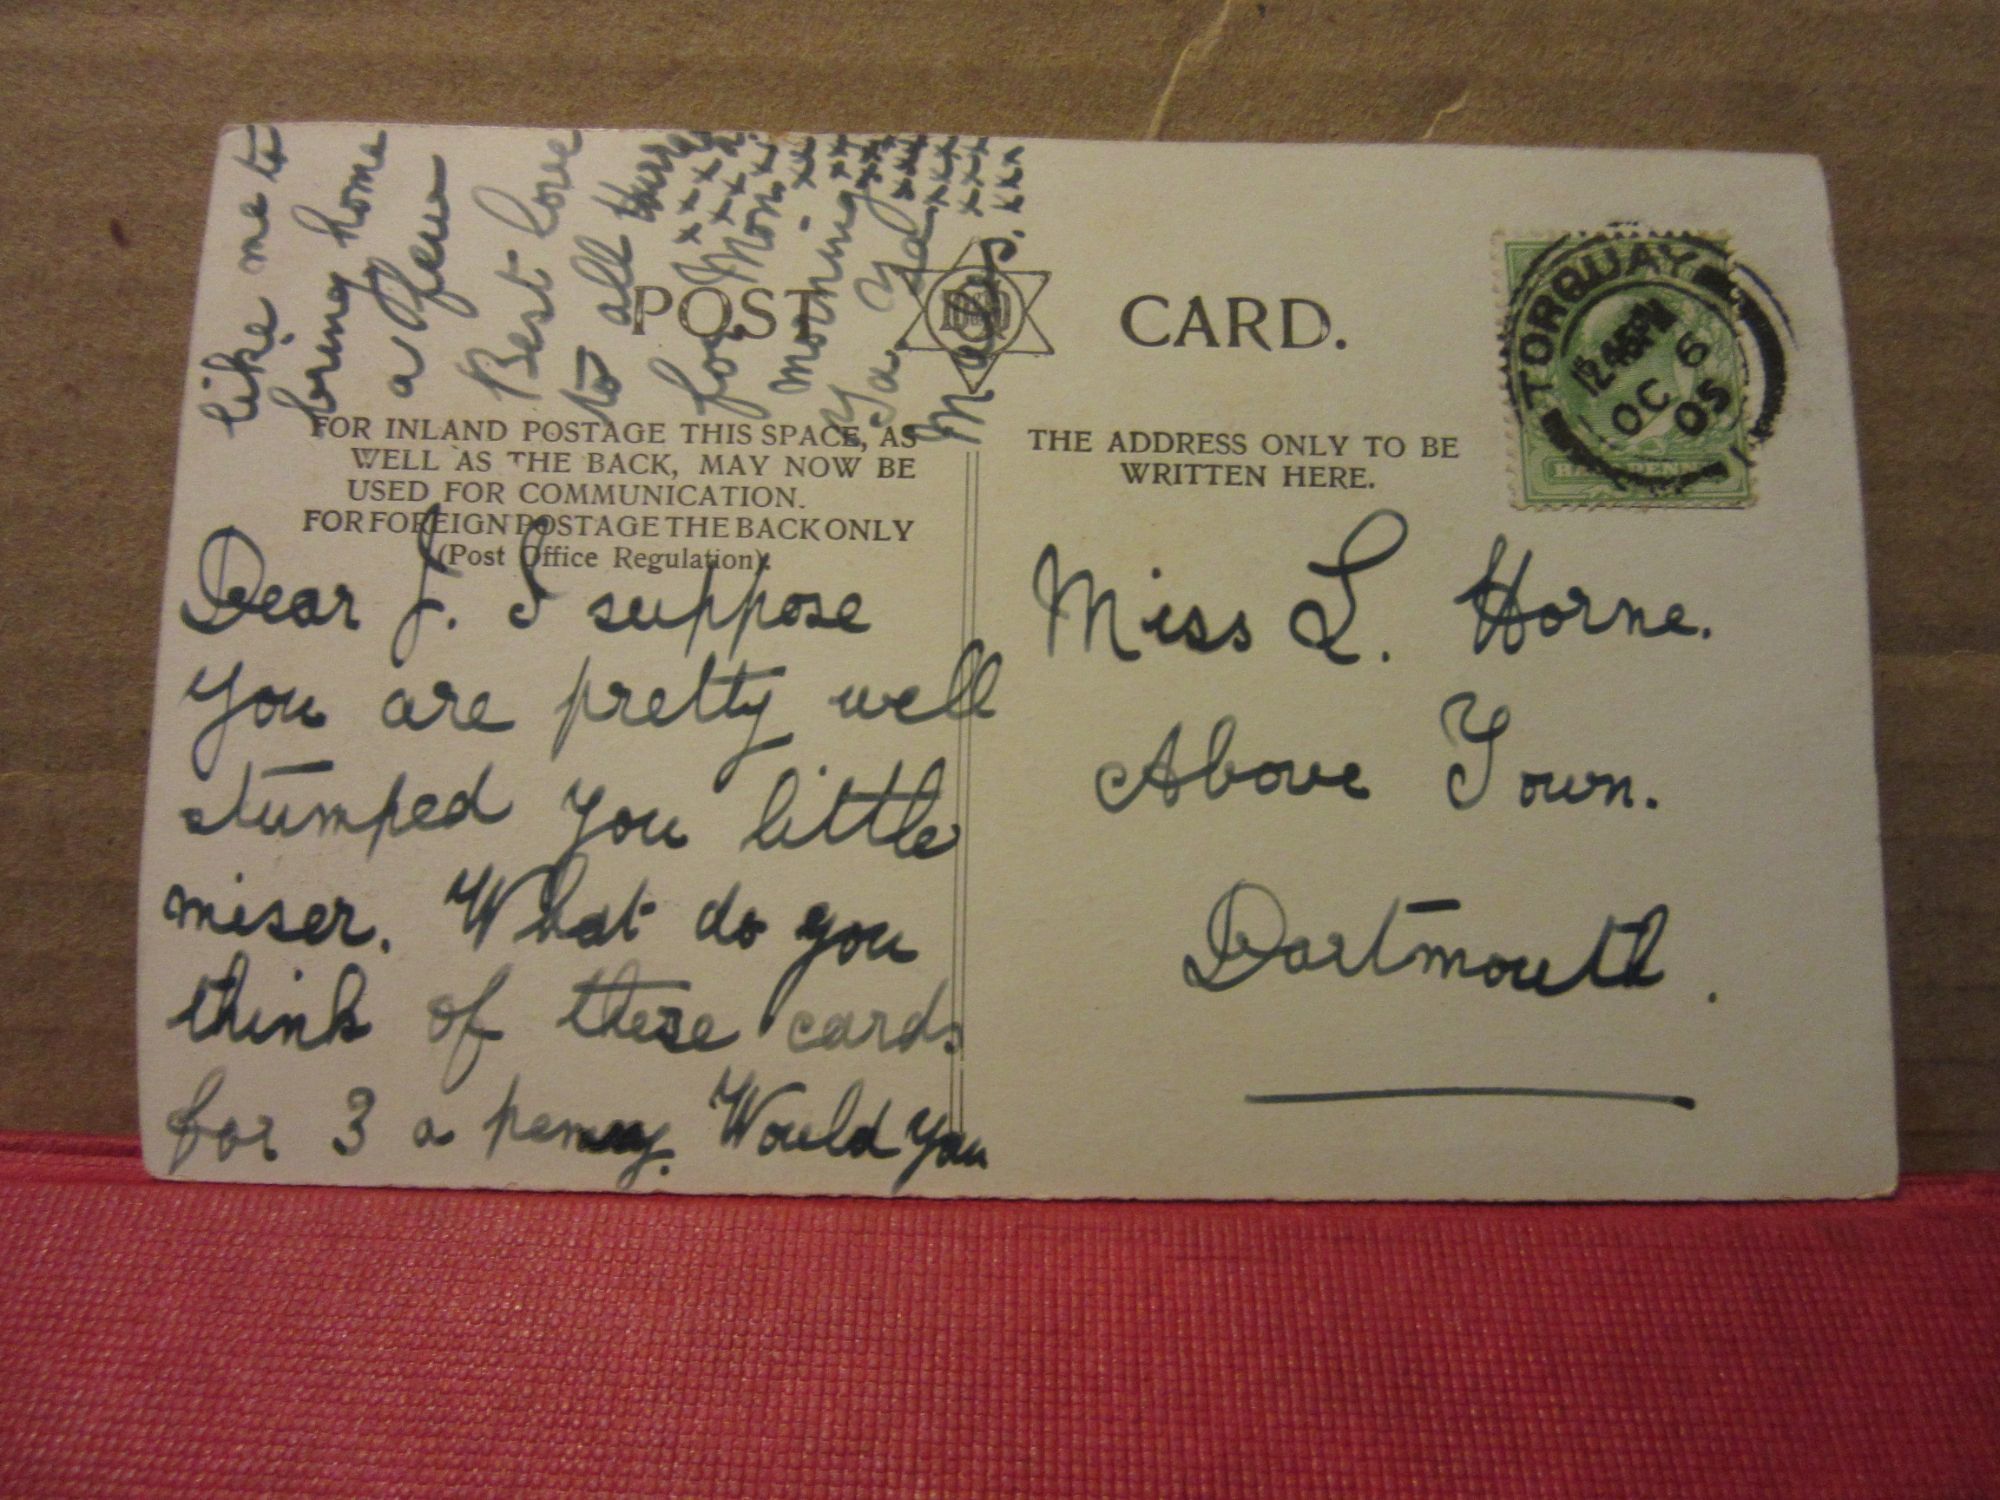 POST CARD.
FOR INLAND POSTAGE THIS SPACE, AS
WELL AS THE BACK, MAY NOW BE
USED FOR COMMUNICATION.
FOR FOREIGN POSTAGE THE BACK ONLY
(Post Office Regulation).
THE ADDRESS ONLY TO BE
WRITTEN HERE.
TORQUAY
12.45PM
OC 6
05
HALFPENNY
Dear J. I suppose
you are pretty well
stumped you little
miser. What do you
think of these cards
for 3 a penny. Would you
like me to
bring home
a few
Best love
to all
xxxx
for Mon
morning
Ta Ya
Miss L. Horne.
Above Town.
Dartmouth.